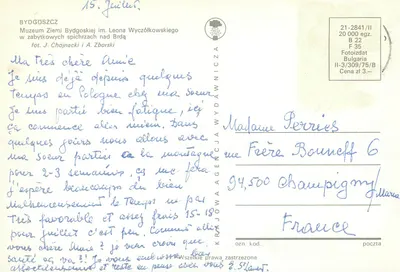 15. Juillet.
BYDGOSZCZ
Muzeum Ziemi Bydgoskiej im. Leona Wyczółkowskiego
w zabytkowych spichrzach nad Brdą
fot. J. Chojnecki i A. Zborski
Ma très chère Annie
Je suis déjà depuis quelques
temps en Pologne chez ma soeur
Je suis partie bien fatigue, ici
ça commence aller mieux. Dans
quelques jours nous allons avec
ma soeur partir à la montagne
pour 2-3 semaines, ça me fera
j'espère beaucoup du bien
malheureusement le temps n'est pas
très favorable et assez frais 15-18
pour juillet c'est peu. Comment allez
vous chère Annie? je veux croire que
santé va? Je vous embrasse bien
affectueusement et reste en pensée avec vous
KRAJOWA AGENCJA WYDAWNICZA
21-2841/II
20 000 egz.
B 22
F 35
Fotoizdat
Bulgaria
II-3/309/75/B
Cena zł 3.—
Madame Perriès
Frère Bonneff 6
94,500 Champigny/Marne
France
Wszelkie prawa zastrzeżone